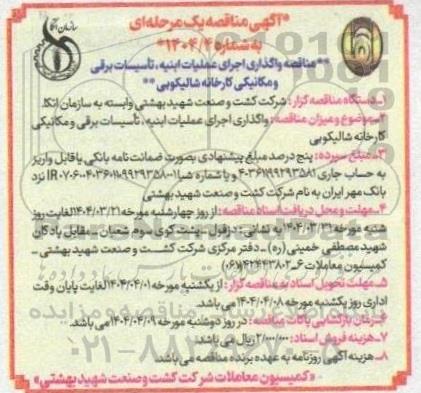 *آگهی مناقصه یک مرحله ای
به شماره ۱۴۰۴/۴*
**مناقصه واگذاری اجرای عملیات ابنیه، تأسیسات برقی
و مکانیکی کارخانه شالیکوبی**
۱ـ دستگاه مناقصه گزار: شرکت کشت و صنعت شهید بهشتی وابسته به سازمان اتکا.
۲ـ موضوع و میزان مناقصه: واگذاری اجرای عملیات ابنیه، تأسیسات برقی و مکانیکی
کارخانه شالیکوبی
۳ـ مبلغ سپرده: پنج درصد مبلغ پیشنهادی بصورت ضمانت نامه بانکی یا قابل واریز
به حساب جاری و با شماره شبا نزد
بانک مهر ایران به نام شرکت کشت و صنعت شهید بهشتی
۴ـ مهلت و محل دریافت اسناد مناقصه: از روز چهارشنبه مورخه ۱۴۰۴/۰۳/۲۱ لغایت روز
شنبه مورخه ۱۴۰۴/۰۳/۳۱ به نشانی: دزفول ـ پشت کوی سوم شعبان ـ مقابل پادگان
شهید مصطفی خمینی (ره) ـ دفتر مرکزی شرکت کشت و صنعت شهید بهشتی ـ
کمیسیون معاملات ۶ـ۴۲۴۴۳۸۰۲(۰۶۱)
۵ـ مهلت تحویل اسناد به مناقصه گزار: از یکشنبه مورخه ۱۴۰۴/۰۴/۰۱ لغایت پایان وقت
اداری روز یکشنبه مورخه ۱۴۰۴/۰۴/۰۸ می باشد.
۶ـ زمان بازگشایی پاکات مناقصه: در روز دوشنبه مورخه ۱۴۰۴/۰۴/۰۹ می باشد.
۷ـ هزینه فروش اسناد: ۲/۰۰۰/۰۰۰ ریال می باشد.
۸ـ هزینه آگهی روزنامه به عهده برنده مناقصه می باشد.
«کمیسیون معاملات شرکت کشت و صنعت شهید بهشتی»